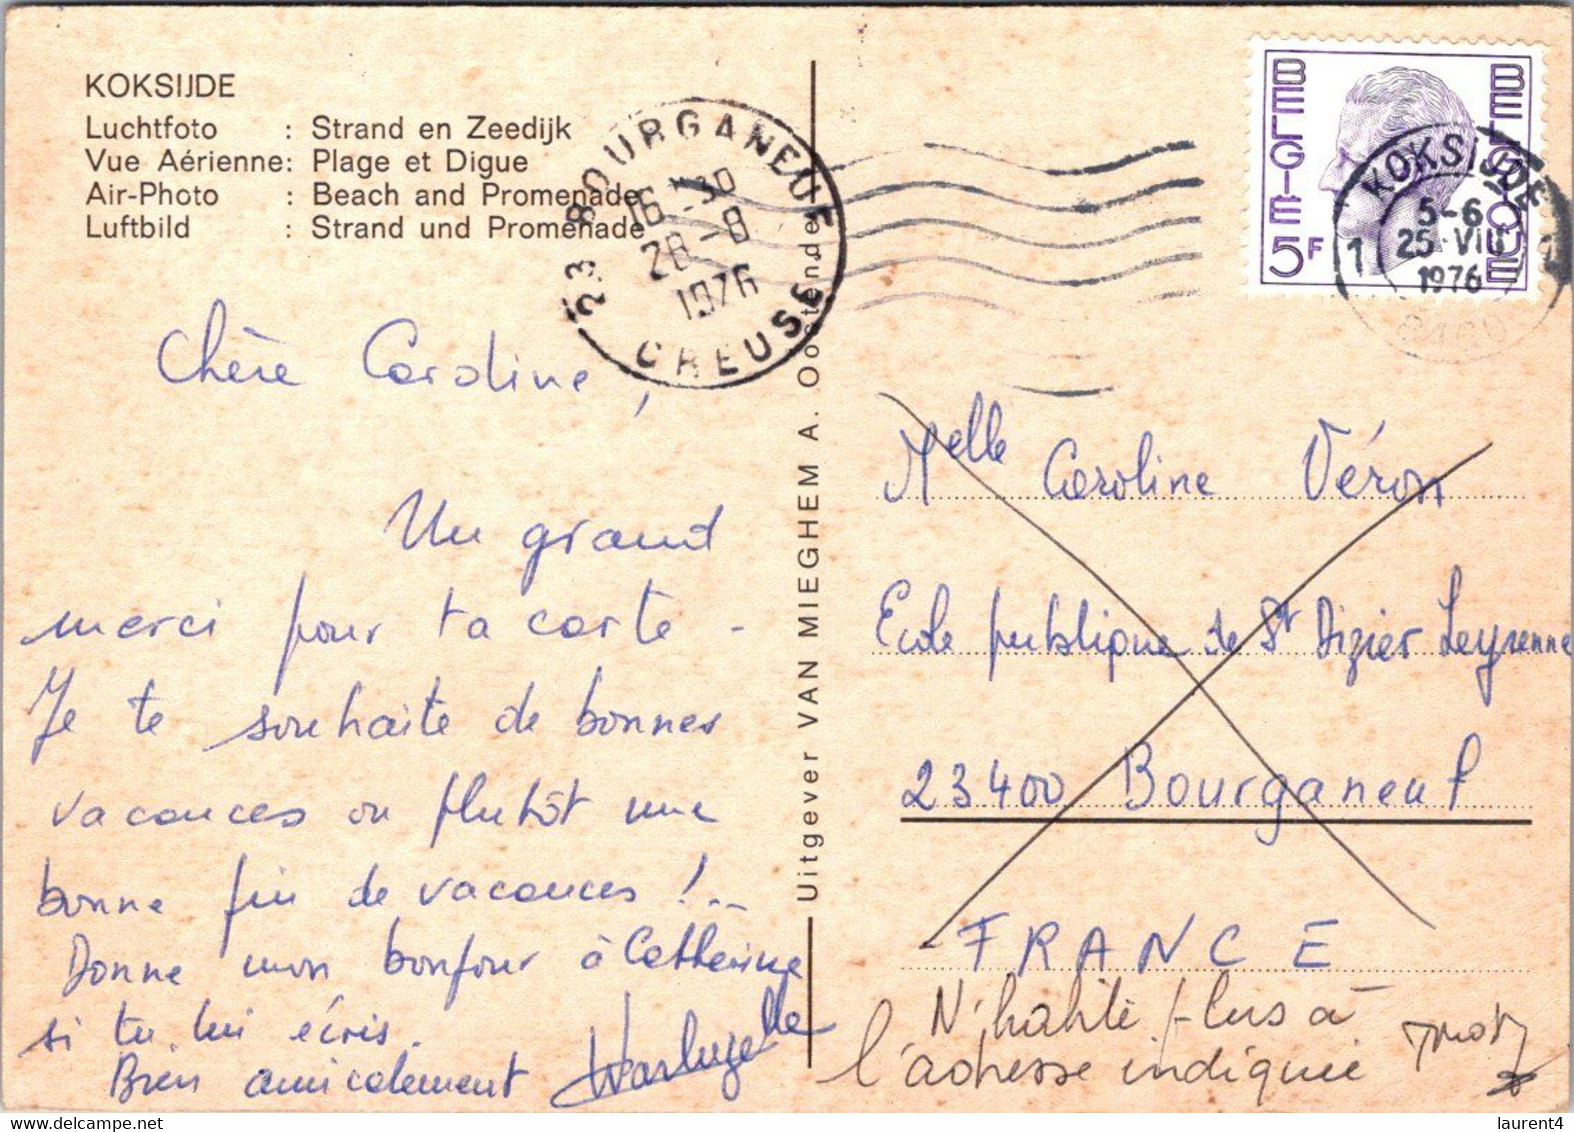 KOKSIJDE
Luchtfoto : Strand en Zeedijk
Vue Aérienne: Plage et Digue
Air-Photo : Beach and Promenade
Luftbild : Strand und Promenade
23 BOURGANEUF
16 - 30
28 - 8
1976
CREUSE
BELGIE 5F
BELGIQUE
KOKSIJDE
5-6
25 VIII
1976
1
Chère Caroline,
Un grand
merci pour ta carte -
Je te souhaite de bonnes
vacances ou plutôt une
bonne fin de vacances !..
Donne mon bonjour à Catherine
si tu lui écris.
Bien amicalement
Uitgever VAN MIEGHEM A. Oostende
Melle Caroline Véron
Ecole publique de St Dizier Leyrenne
23400 Bourganeuf
FRANCE
N'habite plus à
l'adresse indiquée
laurent4